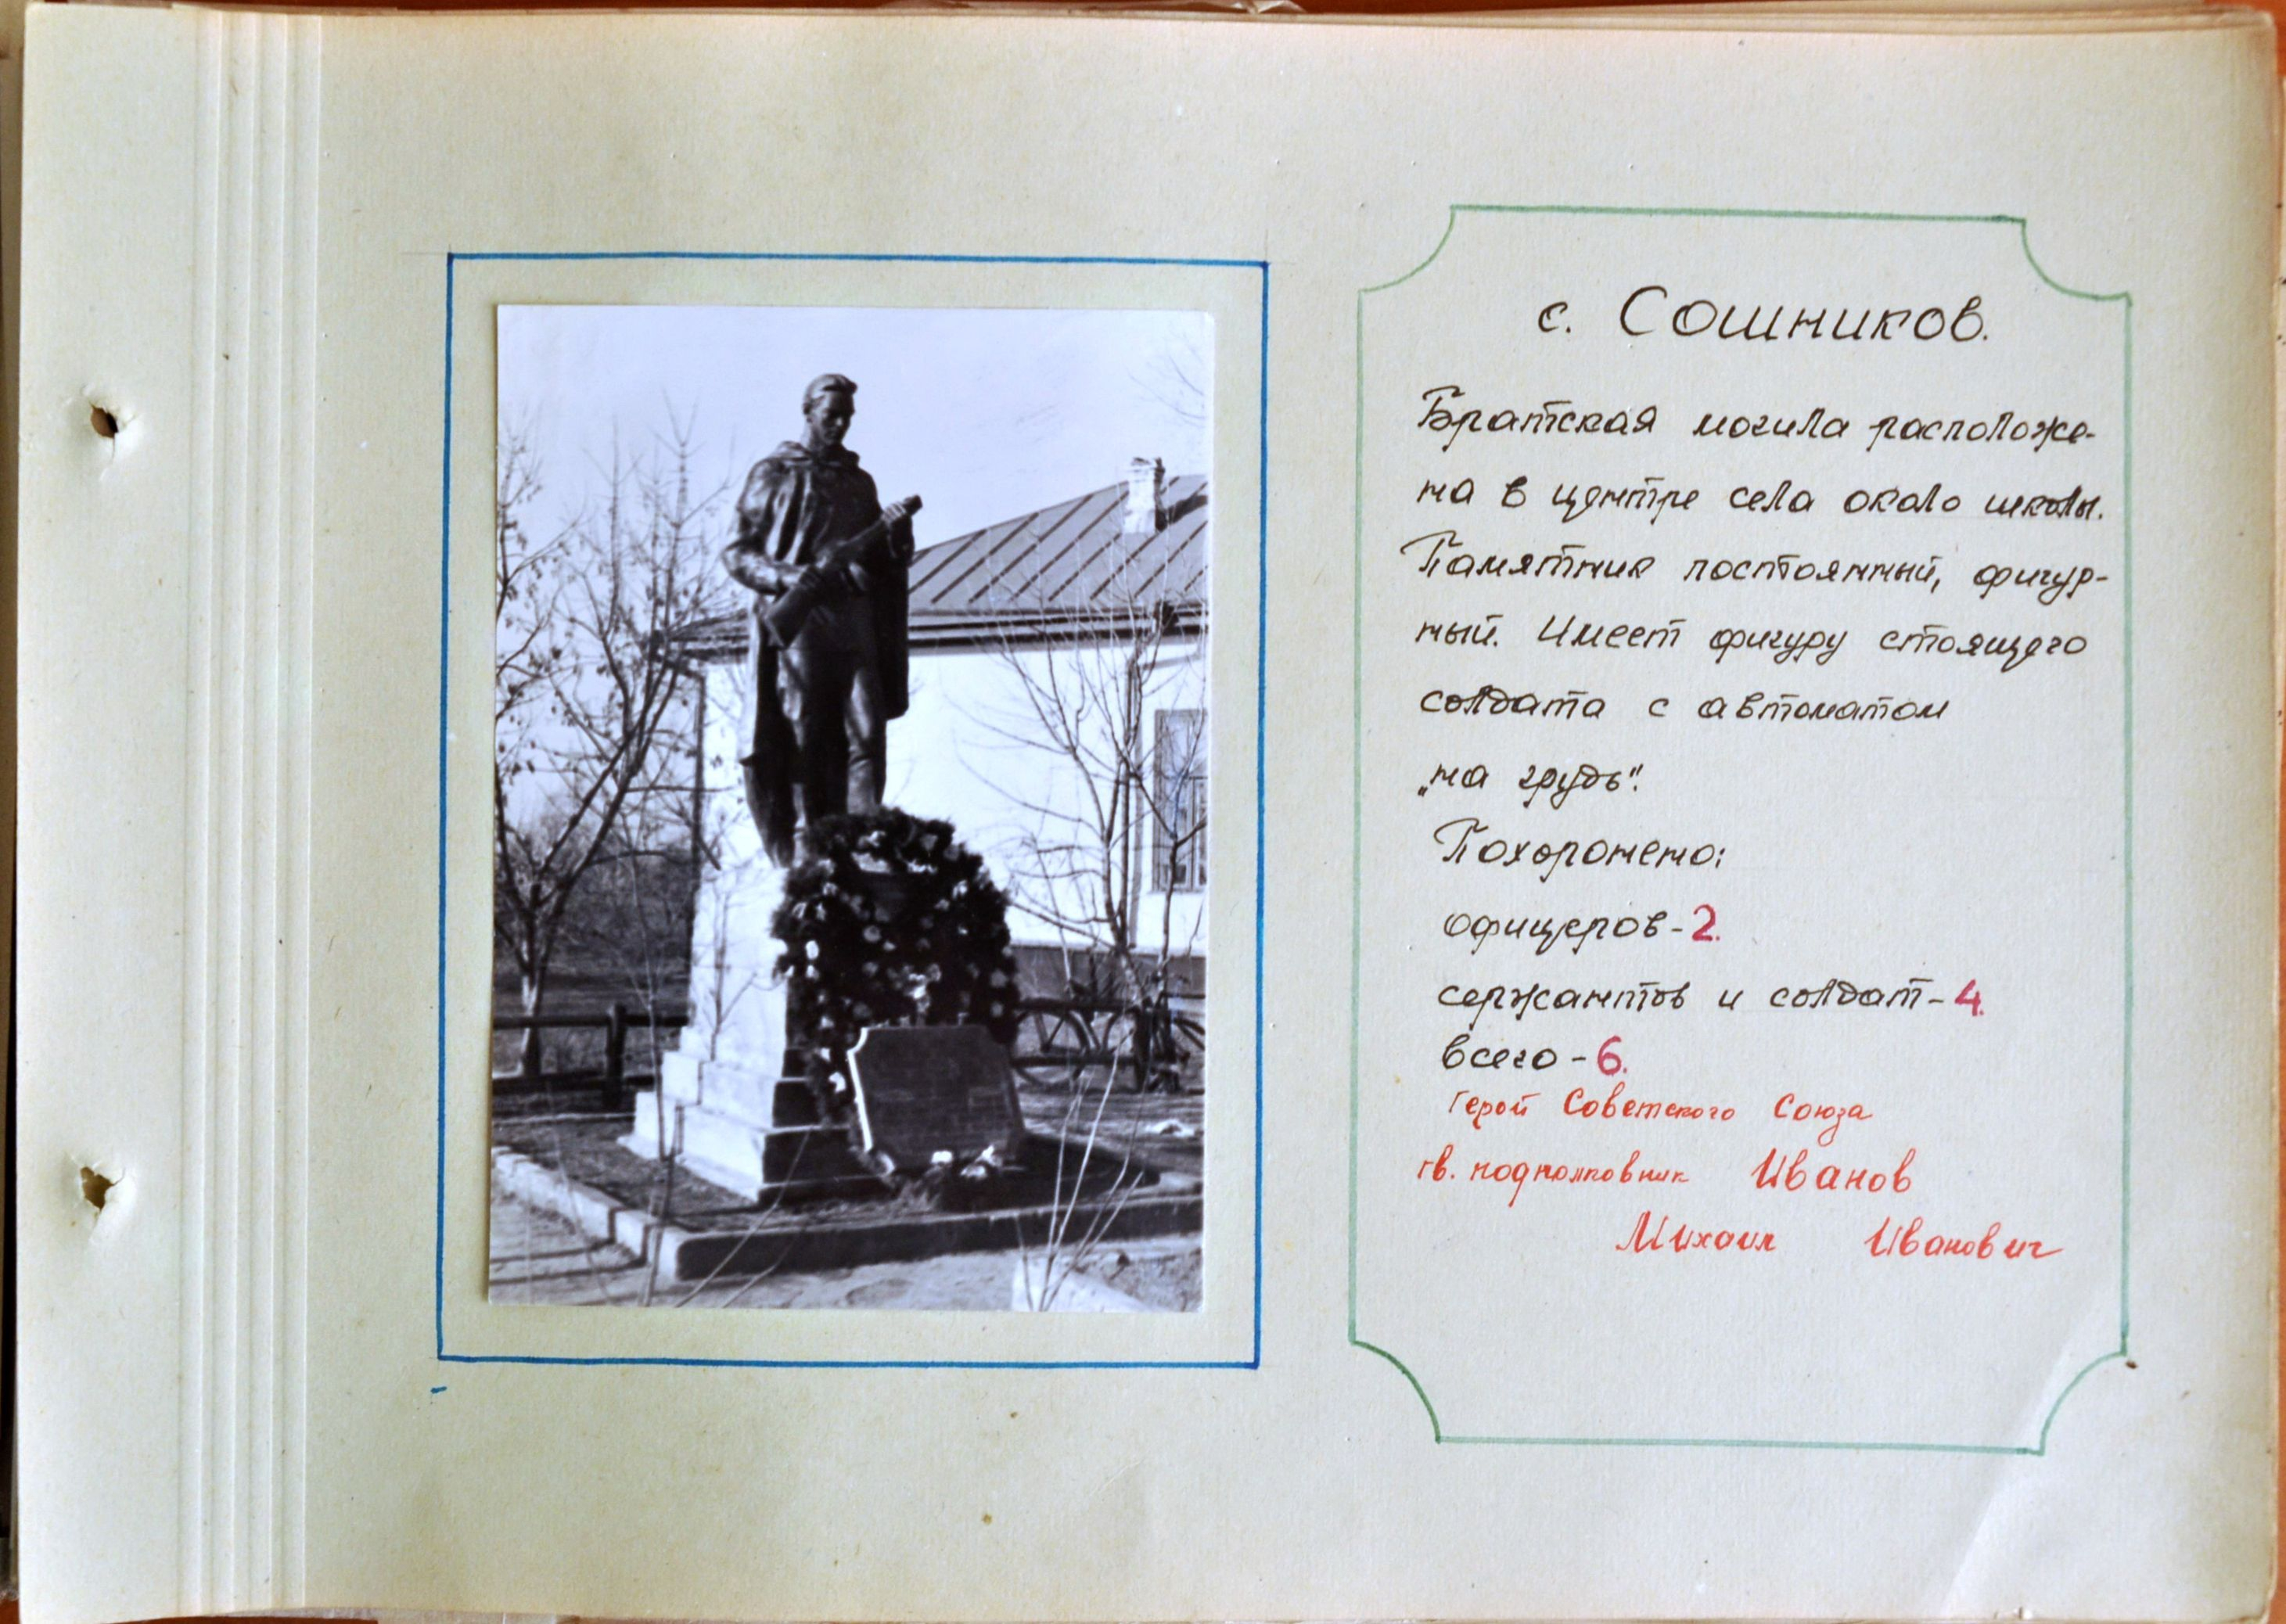 с. Сошников.
Братская могила расположе-
на в центре села около школы.
Памятник постоянный, фигур-
ный. Имеет фигуру стоящего
солдата с автоматом
„на грудь".
Похоронено:
офицеров-2.
сержантов и солдат-4.
всего-6.
Герой Советского Союза
гв. подполковник Иванов
Михаил Иванович